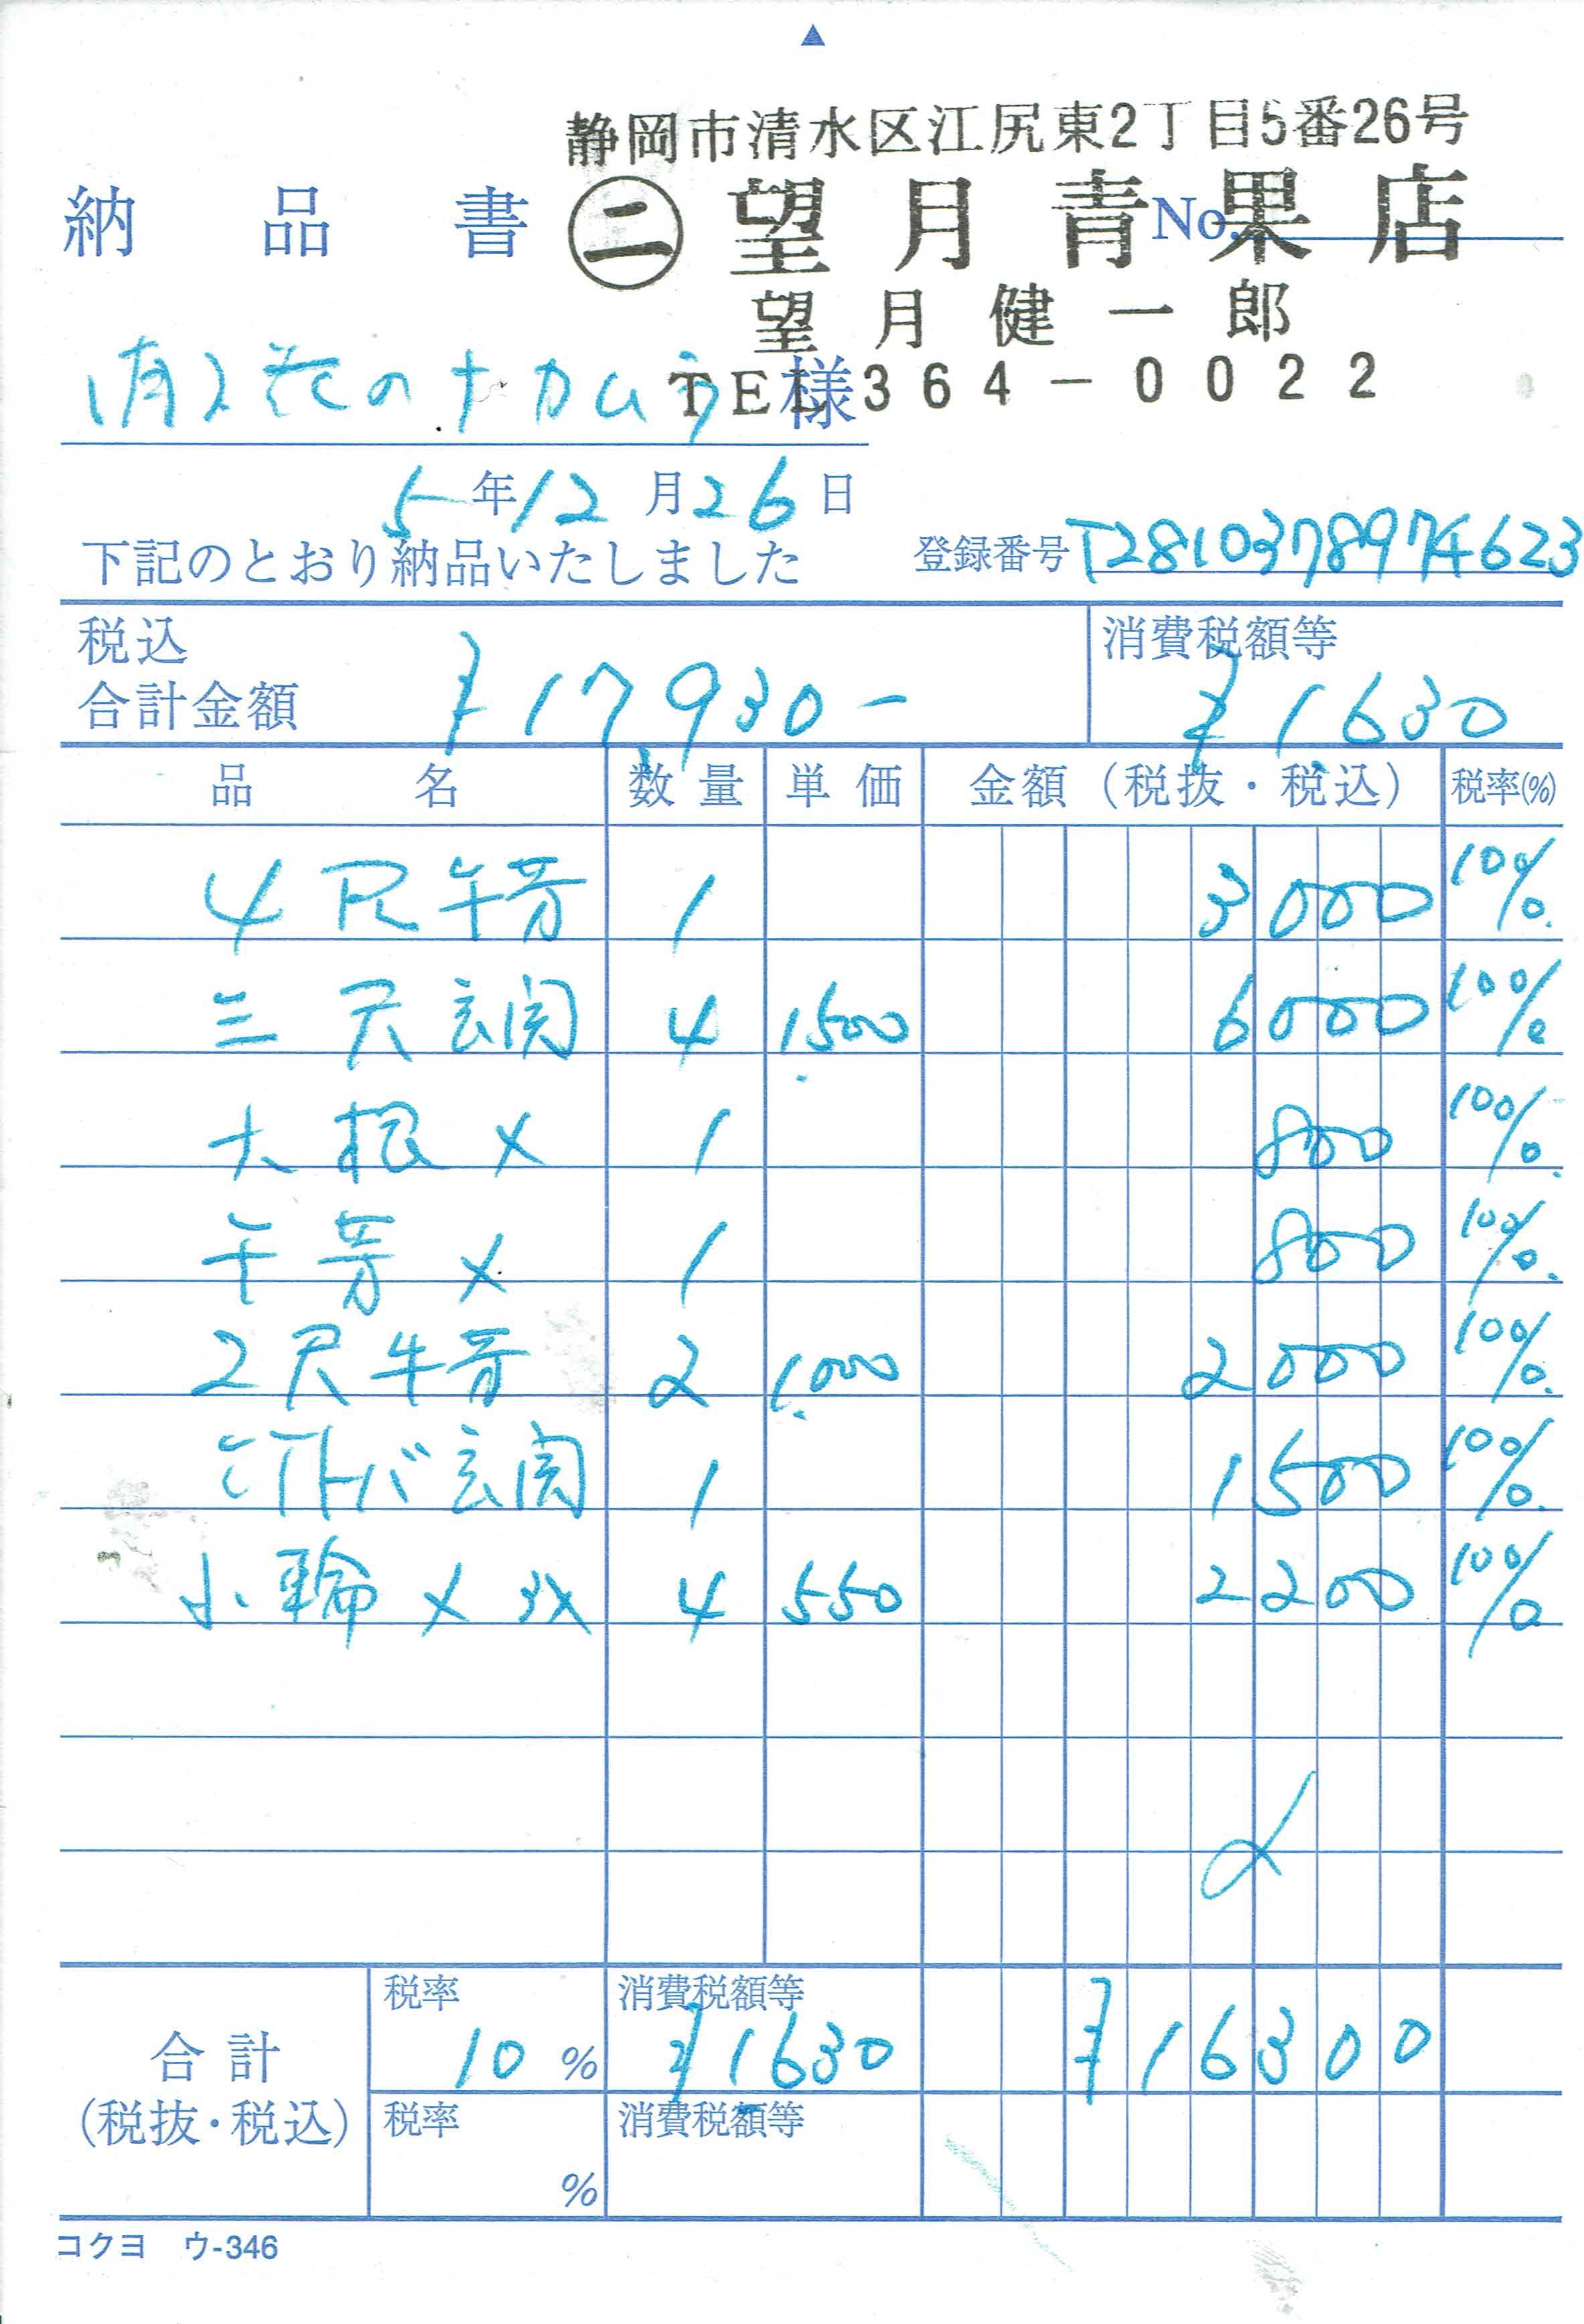 静岡市清水区江尻東2丁目5番26号
納品書 ㊁ 望月青果店 No.
望月健一郎
TEL 364-0022
(有)花のナカムラ 様
5年12月26日
下記のとおり納品いたしました 登録番号 T2810378974623
税込合計金額 ¥17,930- 消費税額等 ¥1,630
品名 数量 単価 金額(税抜・税込) 税率(%)
4尺牛蒡 1 3000 10%
三尺玄関 4 1,500 6000 10%
大根〆 1 800 10%
牛蒡〆 1 800 10%
2尺牛蒡 2 1,000 2000 10%
玄関 1 1500 10%
小輪〆 4 550 2200 10%
合計(税抜・税込) 税率 10% 消費税額等 ¥1,630 ¥16300
税率 % 消費税額等
コクヨ ウ-346